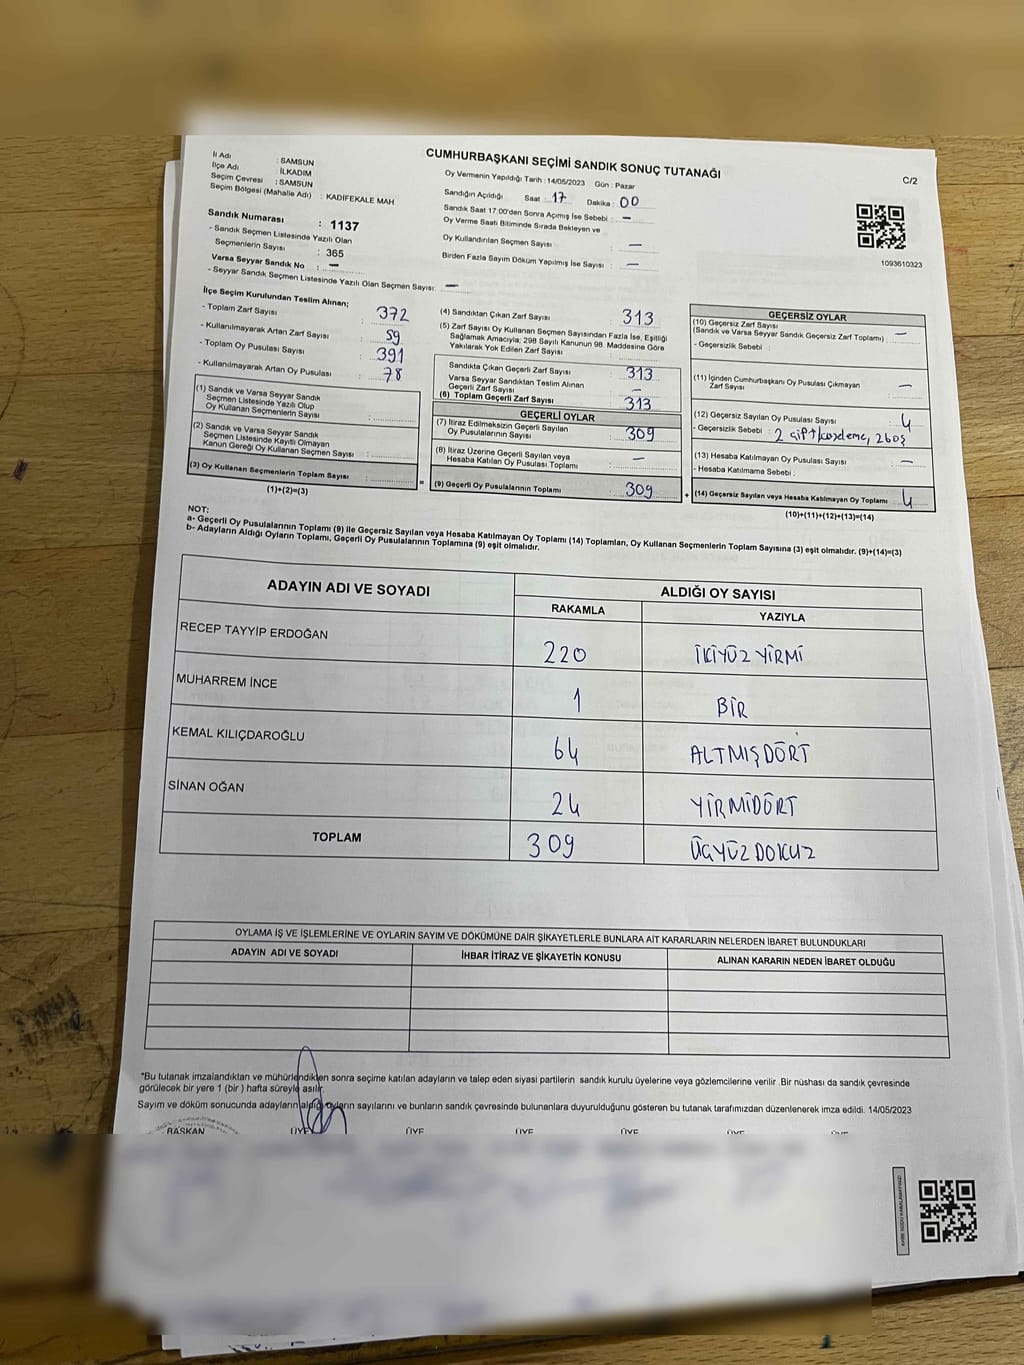 CUMHURBAŞKANI SEÇİMİ SANDIK SONUÇ TUTANAĞI
C/2
İl Adı : SAMSUN
İlçe Adı : İLKADIM
Seçim Çevresi : SAMSUN
Seçim Bölgesi (Mahalle Adı) : KADIFEKALE MAH
Sandık Numarası : 1137
- Sandık Seçmen Listesinde Yazılı Olan
Seçmenlerin Sayısı : 365
Varsa Seyyar Sandık No : –
- Seyyar Sandık Seçmen Listesinde Yazılı Olan Seçmen Sayısı: –
Oy Vermenin Yapıldığı Tarih : 14/05/2023 Gün : Pazar
Sandığın Açıldığı Saat : 17 Dakika : 00
Sandık Saat 17.00'den Sonra Açımış İse Sebebi : –
Oy Verme Saati Bitiminde Sırada Bekleyen ve
Oy Kullandırılan Seçmen Sayısı : –
Birden Fazla Sayım Döküm Yapılmış İse Sayısı : –
1093610323
İlçe Seçim Kurulundan Teslim Alınan;
- Toplam Zarf Sayısı : 372
- Kullanılmayarak Artan Zarf Sayısı : 59
- Toplam Oy Pusulası Sayısı : 391
- Kullanılmayarak Artan Oy Pusulası : 78
(1) Sandık ve Varsa Seyyar Sandık
Seçmen Listesinde Yazılı Olup
Oy Kullanan Seçmenlerin Sayısı :
(2) Sandık ve Varsa Seyyar Sandık
Seçmen Listesinde Kayıtlı Olmayan
Kanun Gereği Oy Kullanan Seçmen Sayısı :
(3) Oy Kullanan Seçmenlerin Toplam Sayısı :
(1)+(2)=(3)
(4) Sandıktan Çıkan Zarf Sayısı : 313
(5) Zarf Sayısı Oy Kullanan Seçmen Sayısından Fazla İse, Eşitliği
Sağlamak Amacıyla; 298 Sayılı Kanunun 98. Maddesine Göre
Yakılarak Yok Edilen Zarf Sayısı :
Sandıkta Çıkan Geçerli Zarf Sayısı : 313
Varsa Seyyar Sandıktan Teslim Alınan
Geçerli Zarf Sayısı : –
(6) Toplam Geçerli Zarf Sayısı : 313
GEÇERLİ OYLAR
(7) İtiraz Edilmeksizin Geçerli Sayılan
Oy Pusulalarının Sayısı : 309
(8) İtiraz Üzerine Geçerli Sayılan veya
Hesaba Katılan Oy Pusulası Toplamı : –
(9) Geçerli Oy Pusulalarının Toplamı : 309
GEÇERSİZ OYLAR
(10) Geçersiz Zarf Sayısı
(Sandık ve Varsa Seyyar Sandık Geçersiz Zarf Toplamı) : –
- Geçersizlik Sebebi :
(11) İçinden Cumhurbaşkanı Oy Pusulası Çıkmayan
Zarf Sayısı : –
(12) Geçersiz Sayılan Oy Pusulası Sayısı : 4
- Geçersizlik Sebebi : 2 çift kaşeleme, 2 boş
(13) Hesaba Katılmayan Oy Pusulası Sayısı : –
- Hesaba Katılmama Sebebi :
(14) Geçersiz Sayılan veya Hesaba Katılmayan Oy Toplamı : 4
(10)+(11)+(12)+(13)=(14)
NOT:
a- Geçerli Oy Pusulalarının Toplamı (9) ile Geçersiz Sayılan veya Hesaba Katılmayan Oy Toplamı (14) Toplamları, Oy Kullanan Seçmenlerin Toplam Sayısına (3) eşit olmalıdır. (9)+(14)=(3)
b- Adayların Aldığı Oyların Toplamı, Geçerli Oy Pusulalarının Toplamına (9) eşit olmalıdır.
ADAYIN ADI VE SOYADI
ALDIĞI OY SAYISI
RAKAMLA YAZIYLA
RECEP TAYYİP ERDOĞAN 220 İKİYÜZ YİRMİ
MUHARREM İNCE 1 BİR
KEMAL KILIÇDAROĞLU 64 ALTMIŞDÖRT
SİNAN OĞAN 24 YİRMİDÖRT
TOPLAM 309 ÜÇYÜZ DOKUZ
OYLAMA İŞ VE İŞLEMLERİNE VE OYLARIN SAYIM VE DÖKÜMÜNE DAİR ŞİKAYETLERLE BUNLARA AİT KARARLARIN NELERDEN İBARET BULUNDUKLARI
ADAYIN ADI VE SOYADI İHBAR İTİRAZ VE ŞİKAYETİN KONUSU ALINAN KARARIN NEDEN İBARET OLDUĞU
*Bu tutanak imzalandıktan ve mühürlendikten sonra seçime katılan adayların ve talep eden siyasi partilerin sandık kurulu üyelerine veya gözlemcilerine verilir. Bir nüshası da sandık çevresinde
görülecek bir yere 1 (bir) hafta süreyle asılır.
Sayım ve döküm sonucunda adayların aldığı oyların sayılarını ve bunların sandık çevresinde bulunanlara duyurulduğunu gösteren bu tutanak tarafımızdan düzenlenerek imza edildi. 14/05/2023
BAŞKAN ÜYE ÜYE ÜYE ÜYE ÜYE ÜYE